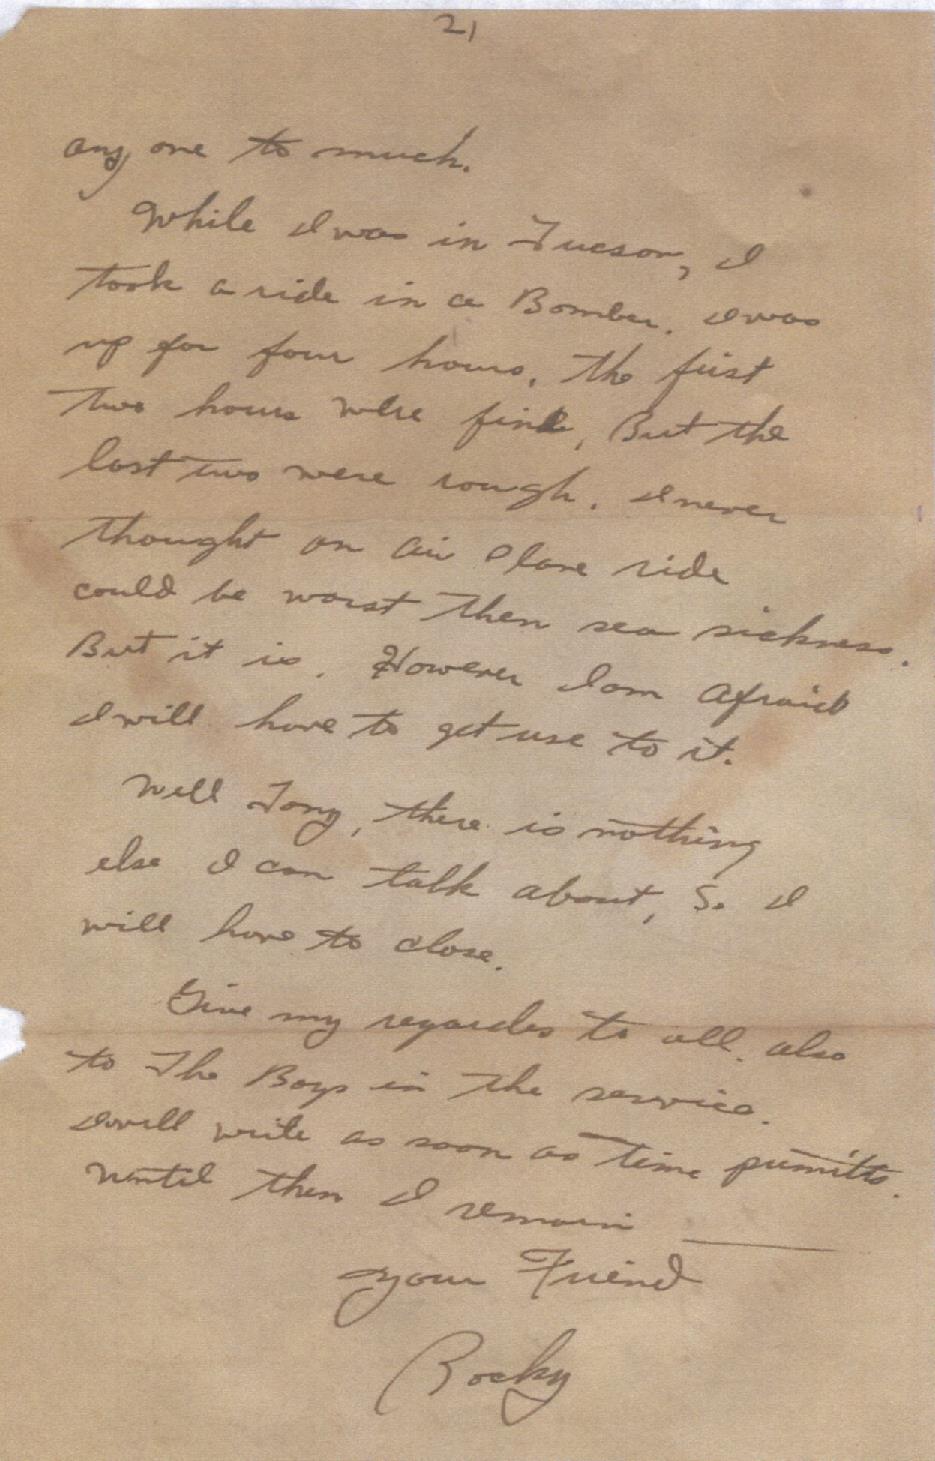 2)
any one to much.
While I was in Tucson, I
took a ride in a Bomber. I was
up for four hours, the first
two hours were fine, But the
last two were rough. I never
thought an air plane ride
could be worst then sea sickness.
But it is. However I am afraid
I will have to get use to it.
Well Tony, there is nothing
else I can talk about, So I
will have to close.
Give my regardes to all. also
to The Boys in the service.
I will write as soon as time permitts.
until then I remain
your Friend
Rocky